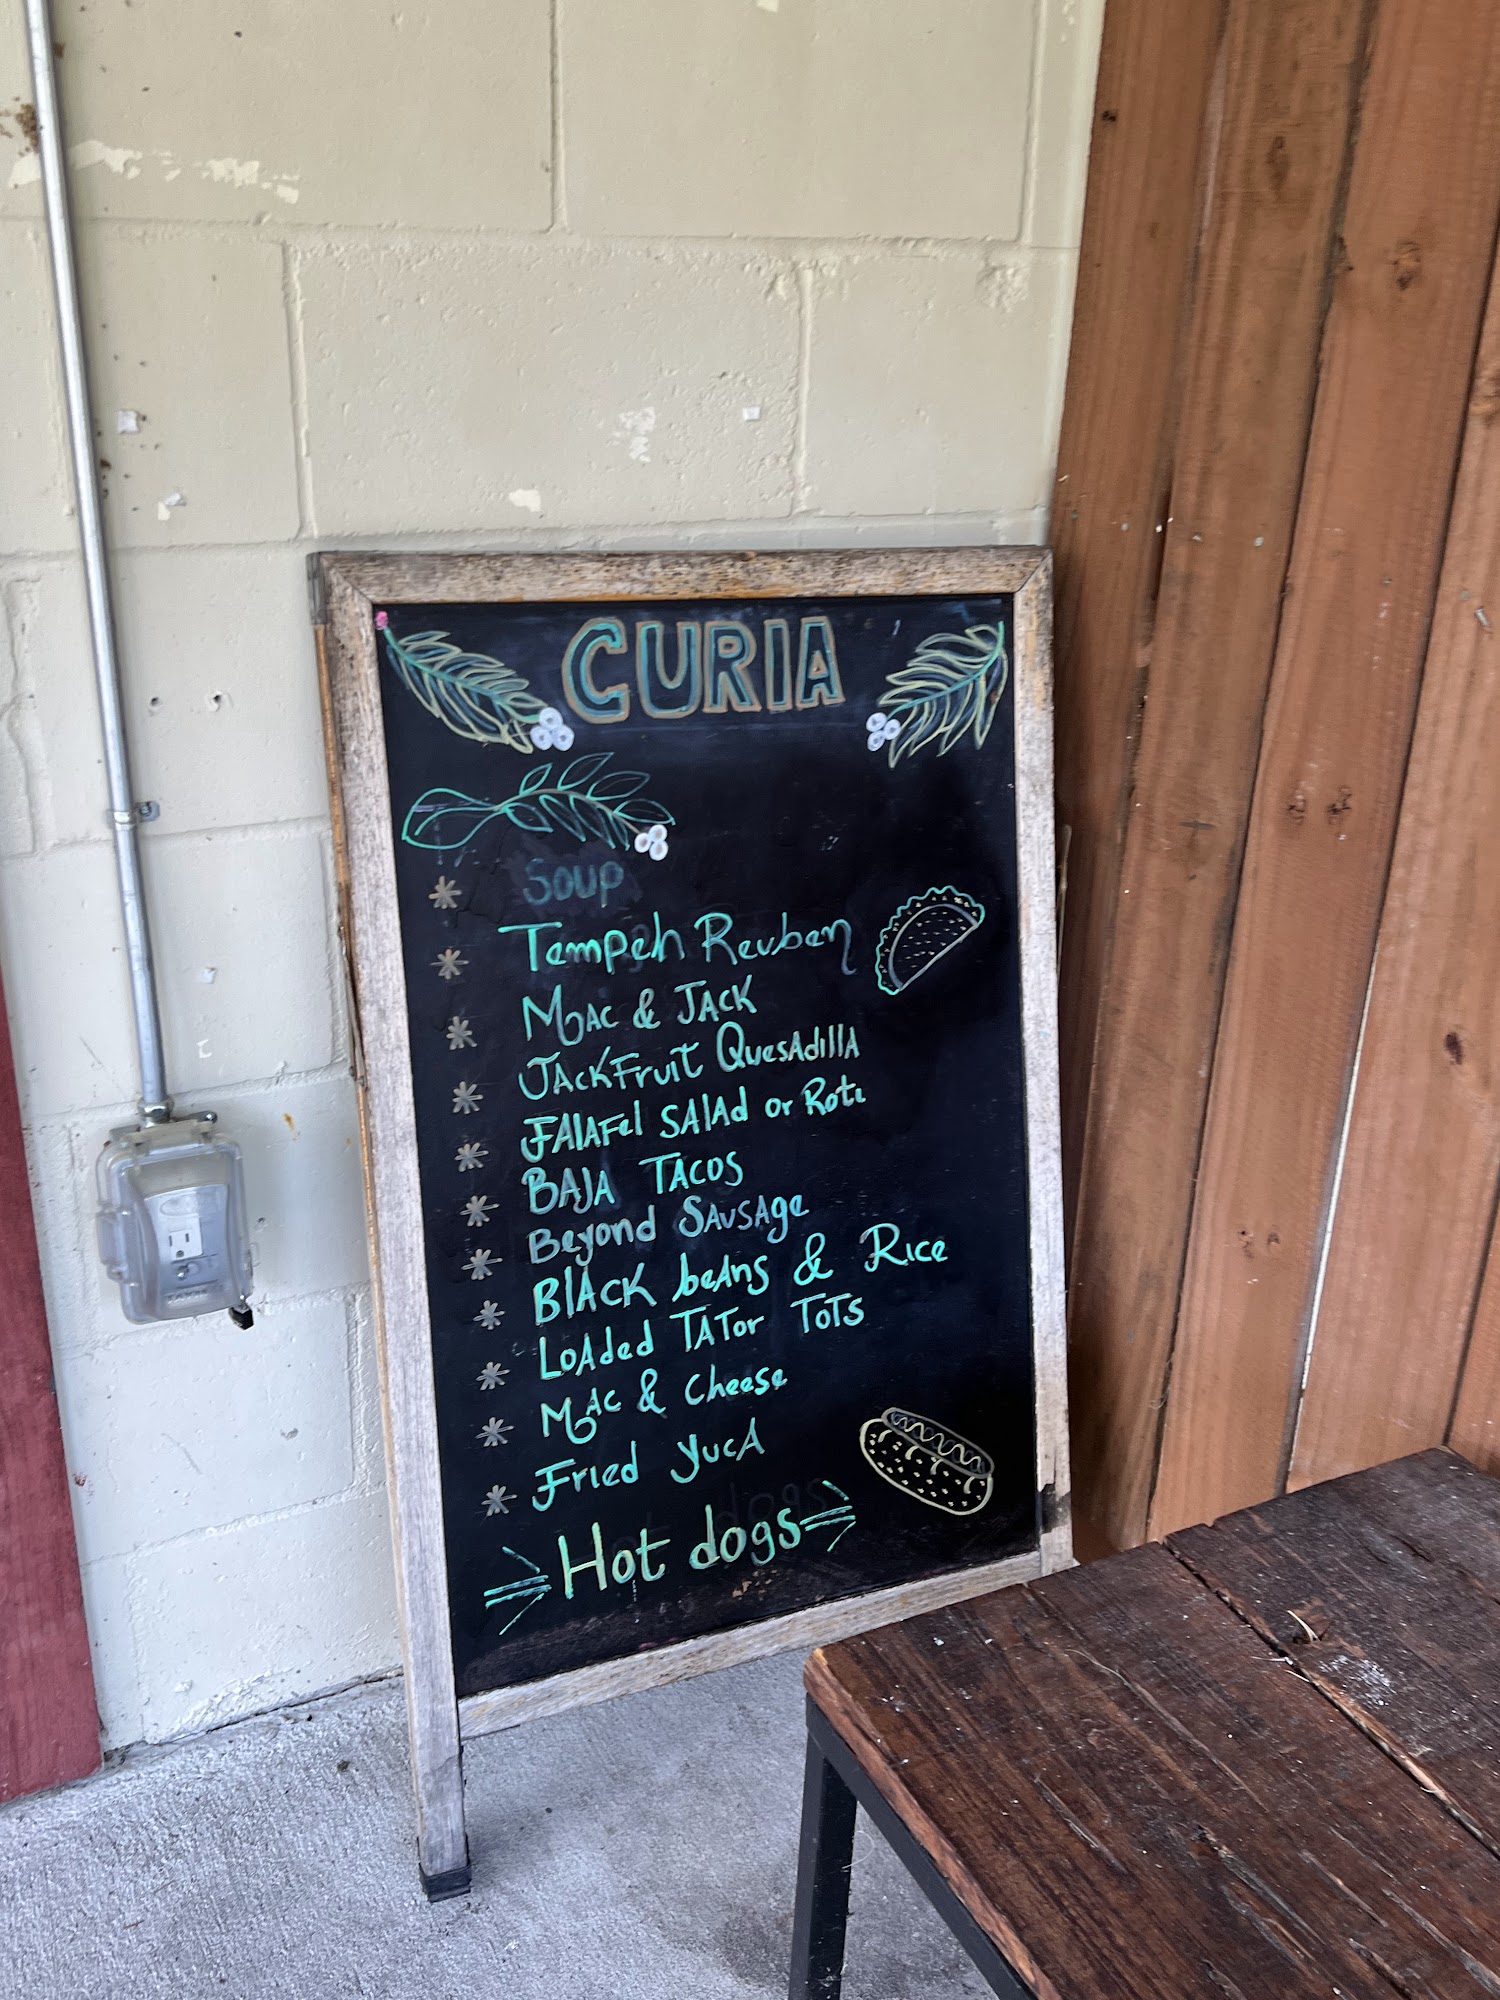 CURIA
* Soup
* Tempeh Reuben
* Mac & JACK
* JACKFruiT QuesAdillA
* FAlAFel SAlAd or Roti
* BAJA TACOS
* Beyond SAusAge
* BlACK beAns & Rice
* LoAded TATor ToTs
* MAc & Cheese
* Fried YucA
Hot dogs